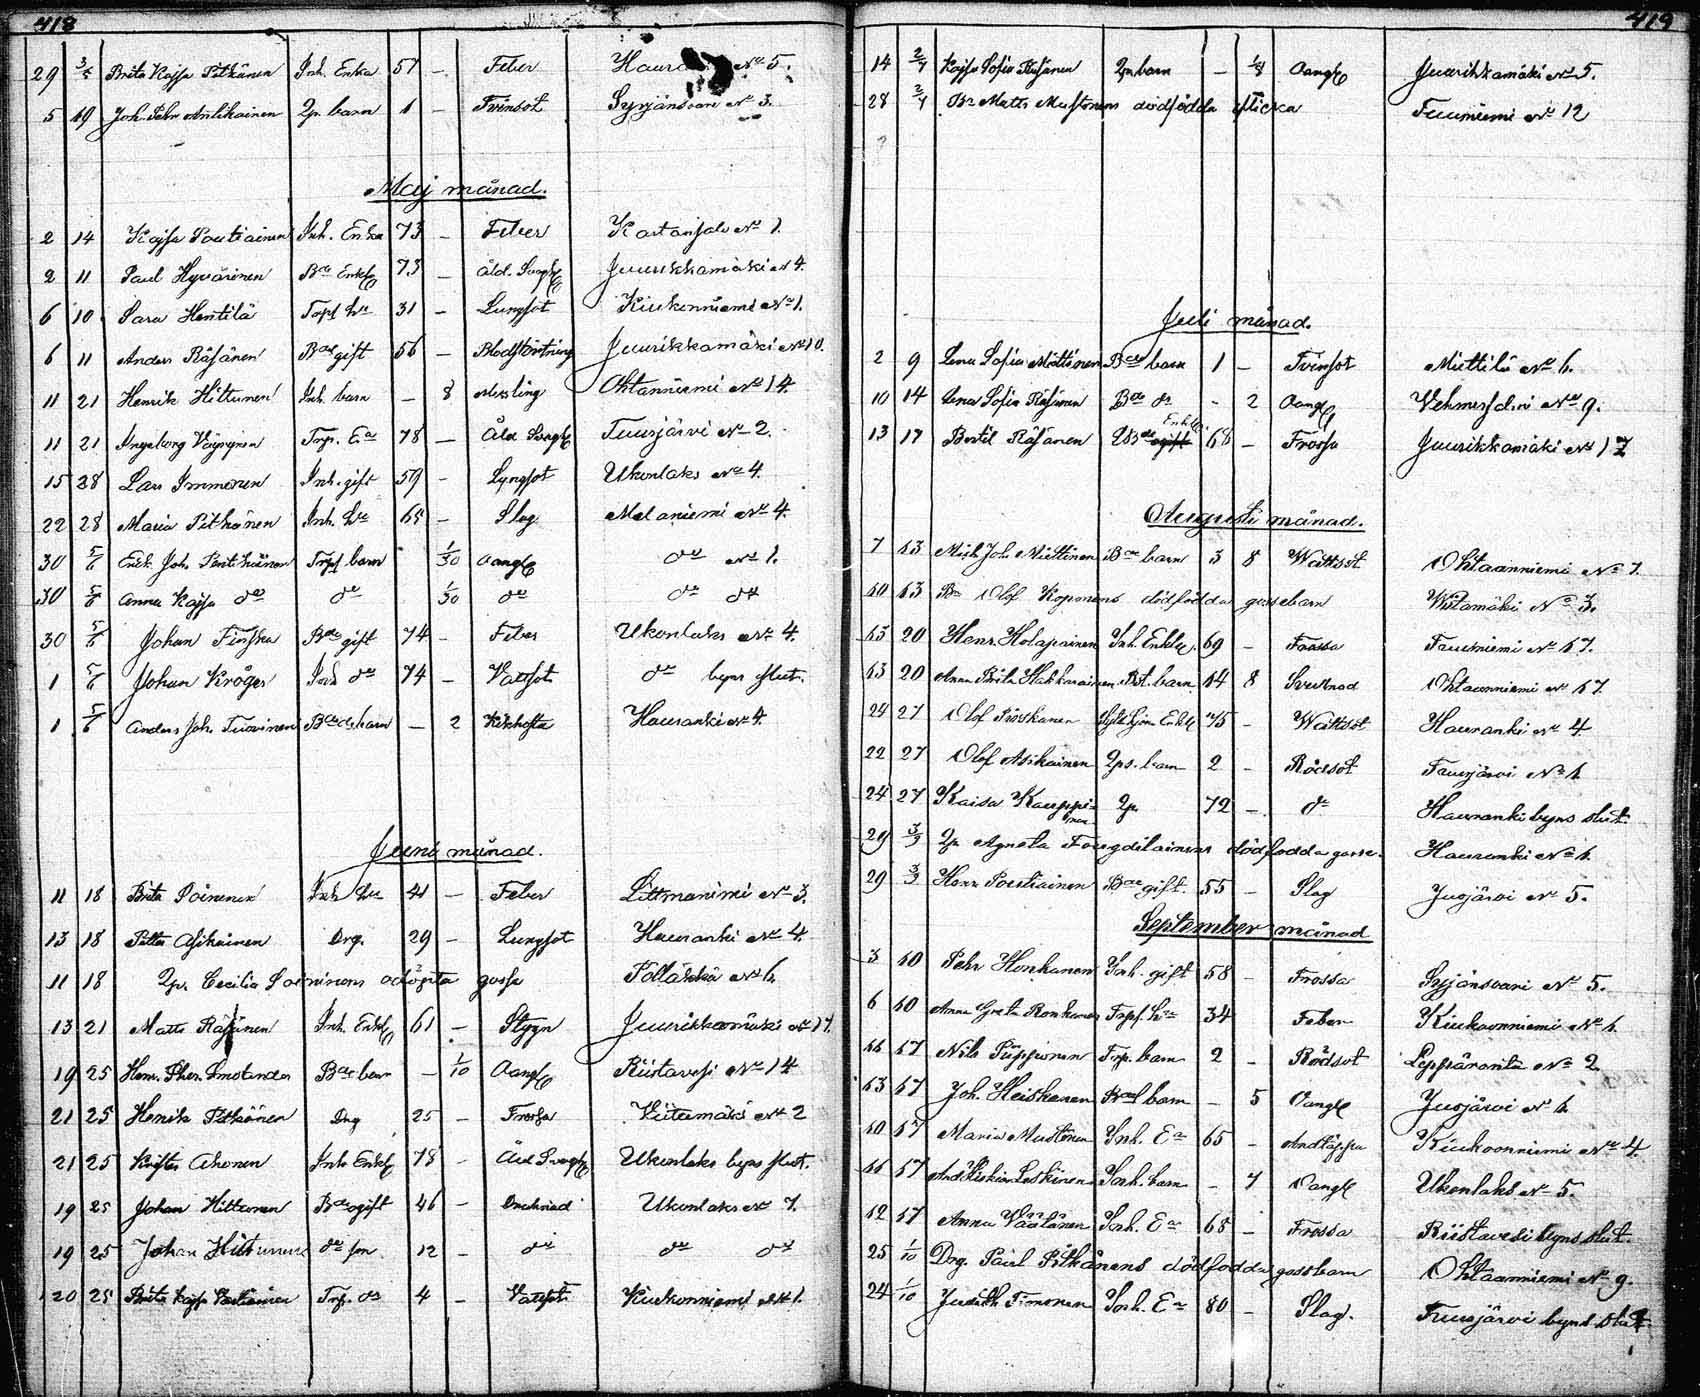 418
29 3/5 Brita Kajsa Pitkänen Inh. Enka 57 – Feber Haura No 5.
5 19 Joh. Pehr Antikainen Qp. barn 1 – Tvinsot Syrjänsaari No 3.
Maj månad.
2 14 Kajsa Poutiainen Inh. Enka 73 – Feber Kartansalo No 1.
2 11 Paul Hyvärinen Bde Enkl 73 – Åld. Svaghe Juurikkamäki No 4.
6 10 Sara Hentilä Torp hu 31 – Lungsot Kiukonniemi No 1.
6 11 Anders Räsänen Bde gift 56 – Blodstörtning Juurikkamäki No 10.
11 21 Henrik Hiltunen Inh. barn – 8 Messling Ohtanniemi No 14.
11 21 Ingeborg Torp. Ea 78 – Åld Svaghe Tuusjärvi No 2.
15 28 Lars Immonen Inh. gift 59 – Lungsot Ukonlaks No 4.
22 28 Maria Pitkänen Inh. hu 65 – Slag Melaniemi No 4.
30 5/6 Erik Joh. Pentikäinen Torp barn 1/30 Oangl do No 1.
30 5/6 Anna Kajsa do do 1/30 do do do
30 5/6 Johan Finska Bde gift 74 – Feber Ukonlaks No 4.
1 5/6 Johan Kröger Inh do 74 – Vattsot do byns slut.
1 5/6 Anders Joh. Tuovinen Bdes barn – 2 Kikhosta Hauranki No 4.
Juni månad.
11 18 Brita Poinenen Inh hu 41 – Feber Littmaniemi No 3.
13 18 Petter Asikainen Drg. 29 – Lungsot Hauranki No 4.
11 18 Qp. Cecilia Soininens odöpta gosse Pölläkkä No 6.
13 21 Matts Räsänen Inh. Enkl 61 – Styng Juurikkamäki No 17.
19 25 Bde barn – 1/10 Oangl Riistavesi No 14
21 25 Henrik Pitkänen Drg 25 – Frossa Viitamäki No 2
21 25 Krister Ahonen Inh Enkl 78 – Åld Svaghe Ukonlaks byns slut.
19 25 Johan Hiltunen Bde gift 46 – Drucknad Ukonlaks No 7.
19 25 Johan Hiltunen do son 12 – do do do
20 25 Brita Kajsa Torp. do 4 – Vattsot Kiukonniemi No 1.
419
14 2/7 Kajsa Sofia Räsänen Qp. barn – 1/8 Oangl Juurikkamäki No 5.
28 2/7 Bn Matts Mustonens dödfödda flicka Tuuniemi No 12
Juli månad.
2 9 Lena Sofia Miettinen Bde barn 1 – Tvinsot Miettilä No 6.
10 14 Lena Sofia Räsänen Bde do – 2 Oangl Vehmersalmi No 9.
13 17 Bertil Räsänen Bde gift Enkl. 68 – Frossa Juurikkamäki No 17
Augusti månad.
7 13 Mich Joh. Miettinen Bde barn 3 8 Wattsot Ohtaanniemi No 7.
10 13 Bn Olof Kopmans dödfödda gossebarn Wiitamäki No 3.
13 20 Henr. Holopainen Inh. Enkl. 69 – Frossa Tuuniemi No 17.
13 20 Anna Brita Hakkarainen Bst. barn 14 8 Svullnad Ohtaanniemi No 17.
24 27 Olof Pöoskanen Enkl 75 – Wattsot Hauranki No 4
22 27 Olof Asikainen Qps. barn 2 – Rödsot Tuusjärvi No 6
24 27 Kaisa Kauppinen Qp. 72 – do Hauranki byns slut.
29 3/9 Qp. Agneta dödfödda gosse. Hauranki No 6.
29 3/9 Henr. Poutiainen Bde gift. 55 – Slag Jusjärvi No 5.
September månad
3 10 Pehr Honkanen Inh. gift 58 – Frossa Syjänsaari No 5.
6 10 Anna Greta Ronkanen Torp. hu 34 Feber Kiukoonniemi No 6.
16 17 Nils Piipponen Torp. barn 2 – Rödsot Leppäranta No 2
13 17 Joh. Heiskanen Bde barn – 5 Oangl Jusjärvi No 6
10 17 Maria Mustonen Inh. Ea 65 – Andtäppa Kiukoonniemi No 4.
16 17 Leskinen Inh. barn – 7 Oangl Ukonlaks No 5.
12 17 Anna Väätänen Inh. Ea 68 – Frossa Riistavesi byns slut.
25 1/10 Drg. Paul Pitkänens dödfodda gossbarn Ohtaanniemi No 9.
24 1/10 Judith Timonen Inh. Ea 80 – Slag. Tuusjärvi byns slut